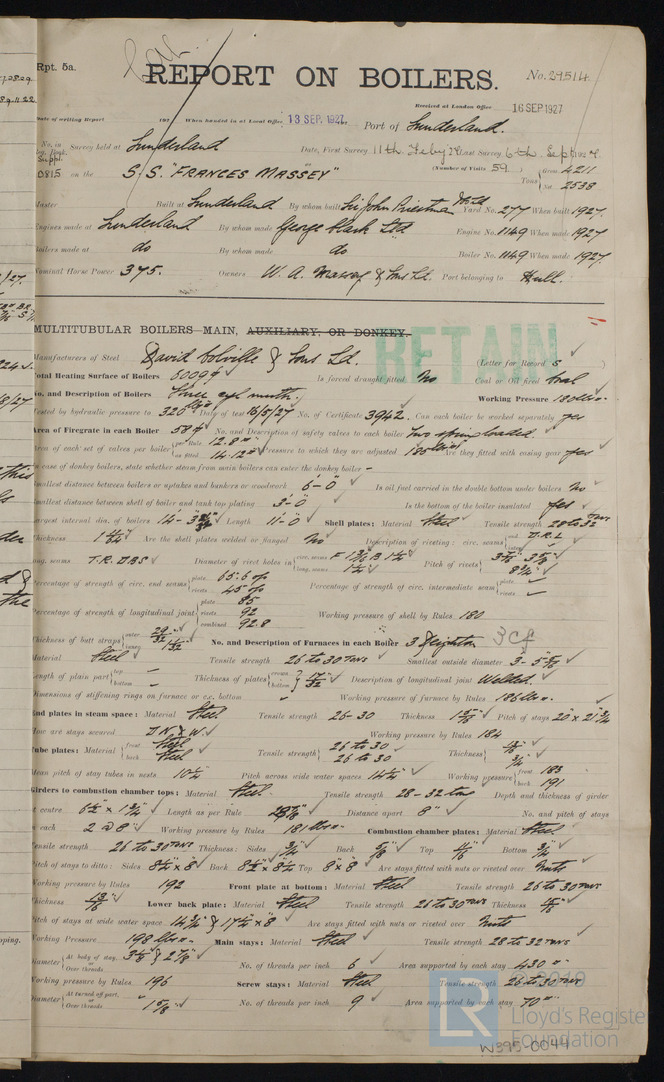 Rpt. 5a.
REPORT ON BOILERS.
No. 29514
Received at London Office 16 SEP 1927
Date of writing Report 192 When handed in at Local Office 13 SEP. 1927 Port of Sunderland.
No. in Survey held at Sunderland Date, First Survey 11th Feby 27 Last Survey 6th Sept 1927.
on the S.S. "FRANCES MASSEY" (Number of Visits 59) Tons Gross 4211
Net 2538
Master Built at Sunderland By whom built Sir John Priestman & Co Ld Yard No. 277 When built 1927.
Engines made at Sunderland By whom made George Clark Ltd. Engine No. 1149 When made 1927
Boilers made at do By whom made do Boiler No. 1149 When made 1927.
Nominal Horse Power 375. Owners W. A. Massey & Sons Ld. Port belonging to Hull.
MULTITUBULAR BOILERS—MAIN, AUXILIARY, OR DONKEY.
RETAIN
Manufacturers of Steel David Colville & Sons Ld. (Letter for Record S)
Total Heating Surface of Boilers 6009 Is forced draught fitted No Coal or Oil fired Coal
No. and Description of Boilers Three cyl. mult. Working Pressure 180 lbs
Tested by hydraulic pressure to 320 Date of test 16/5/27 No. of Certificate 3942. Can each boiler be worked separately yes
Area of Firegrate in each Boiler 58 No. and Description of safety valves to each boiler Two spring loaded.
Area of each set of valves per boiler per Rule 12.8
as fitted 14.12 Pressure to which they are adjusted 185 Are they fitted with easing gear yes
In case of donkey boilers, state whether steam from main boilers can enter the donkey boiler –
Smallest distance between boilers or uptakes and bunkers or woodwork 6'-0" Is oil fuel carried in the double bottom under boilers No
Smallest distance between shell of boiler and tank top plating 3'-0" Is the bottom of the boiler insulated yes
Largest internal dia. of boilers Length 11'-0 Shell plates: Material Steel Tensile strength 28 to 32 TONS
Thickness Are the shell plates welded or flanged No Description of riveting: circ. seams end D.R.L
long. seams T.R. DBS Diameter of rivet holes in circ. seams
long. seams Pitch of rivets
Percentage of strength of circ. end seams plate 65.6
rivets 45 Percentage of strength of circ. intermediate seam plate –
rivets –
Percentage of strength of longitudinal joint plate 85
rivets 92
combined 92.8 Working pressure of shell by Rules 180
Thickness of butt straps outer 29/32
inner 1 1/32 No. and Description of Furnaces in each Boiler 3 Deighton 3 Cf
Material Steel Tensile strength 26 to 30 TONS Smallest outside diameter
Length of plain part top –
bottom – Thickness of plates crown
bottom 17/32 Description of longitudinal joint Welded.
Dimensions of stiffening rings on furnace or c.c. bottom Working pressure of furnace by Rules 186 lbs
End plates in steam space: Material Steel. Tensile strength 26-30 Thickness Pitch of stays 20 x 21 3/4
How are stays secured D.N & W. Working pressure by Rules 184
Tube plates: Material front Steel
back Steel Tensile strength 26 to 30
26 to 30 Thickness
Mean pitch of stay tubes in nests 10 1/2 Pitch across wide water spaces 14 1/2 Working pressure front 183
back 191
Girders to combustion chamber tops: Material Steel. Tensile strength 28-32 tons Depth and thickness of girder
at centre Length as per Rule Distance apart 8" No. and pitch of stays
in each 2 @ 8" Working pressure by Rules 181 lbs Combustion chamber plates: Material Steel
Tensile strength 26 to 30 TONS Thickness: Sides Back Top Bottom
Pitch of stays to ditto: Sides 8 1/2" x 8" Back Top 8" x 8" Are stays fitted with nuts or riveted over Nuts
Working pressure by Rules 192 Front plate at bottom: Material Steel Tensile strength 26 to 30 TONS
Thickness Lower back plate: Material Steel Tensile strength 26 to 30 TONS Thickness
Pitch of stays at wide water space Are stays fitted with nuts or riveted over Nuts
Working Pressure 198 lbs Main stays: Material Steel Tensile strength 28 to 32 TONS
Diameter At body of stay, or Over threads No. of threads per inch 6 Area supported by each stay 430
Working pressure by Rules 196 Screw stays: Material Steel Tensile strength 26 to 30 TONS
Diameter At turned off part, or Over threads 1 5/8" No. of threads per inch 9 Area supported by each stay 70
LR
Lloyd's Register
Foundation
W395-0044